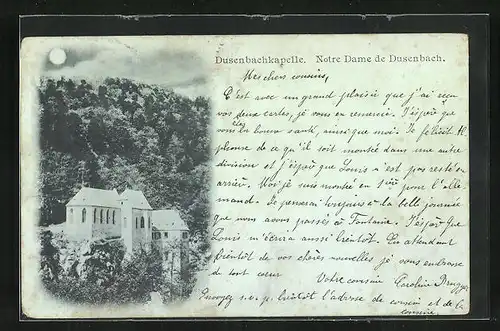 Dusenbachkapelle. Notre Dame de Dusenbach.
Mes chers cousins,
C'est avec un grand plaisir que j'ai reçu
vos deux cartes, je vous en remercie. J'espère que
vous êtes en bonne santé, ainsi que moi. Je félicite Al-
phonse de ce qu'il soit montée dans une autre
division et j'éspère que Louis n'est pas resté en
arrière. Moi je suis montée en 1ère pour l'alle-
mand. Je penserai toujours à la belle journée
que nous avons passés à Fontaine. J'éspère que
Louis m'écrira aussi bientôt. En attendant
bientôt de vos chères nouvelles je vous embrasse
de tout cœur
Votre cousine Caroline
Envoyez s.v.p. bientôt l'adresse de cousin et de la
cousine.